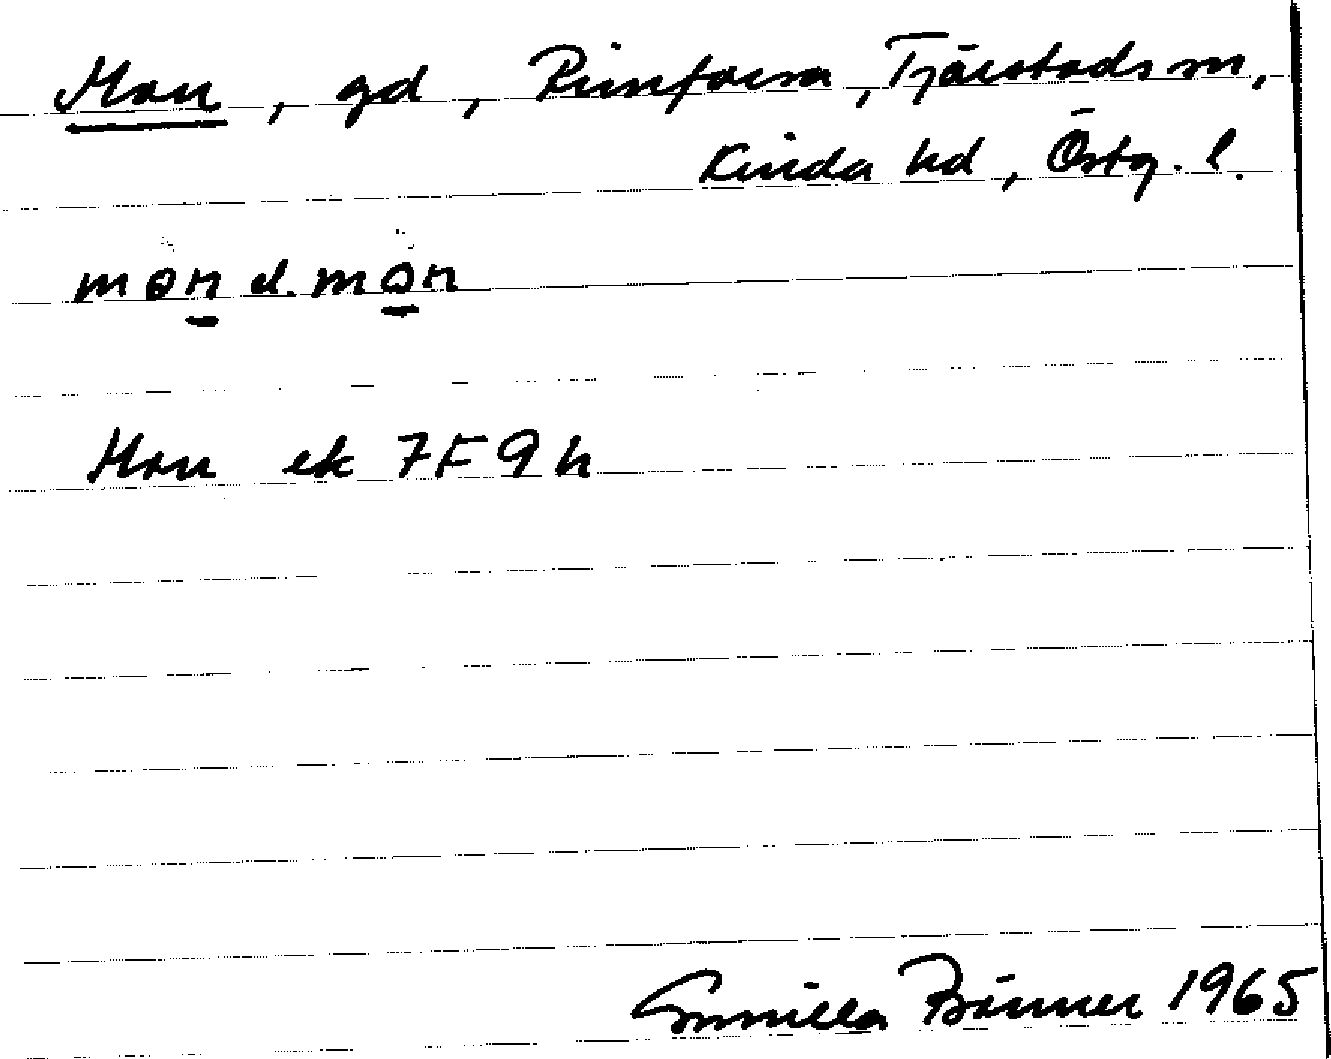 Mon, gd, Rimforsa, Tjärstads sn,
Kinda hd, Östg. l.
mon el. mon
Mon ek 7F9h
Gunilla Bönner 1965